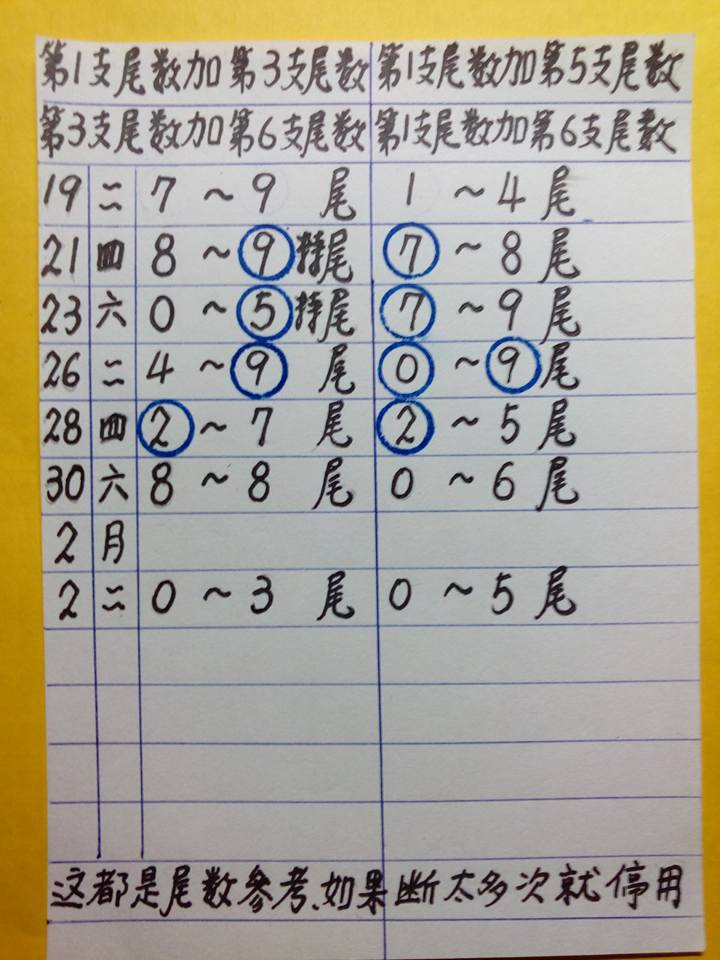 第1支尾数加第3支尾数 第1支尾数加第5支尾数
第3支尾数加第6支尾数 第1支尾数加第6支尾數
19 二 7 ~ 9 尾 1 ~ 4 尾
21 四 8 ~ 9 特尾 7 ~ 8 尾
23 六 0 ~ 5 特尾 7 ~ 9 尾
26 二 4 ~ 9 尾 0 ~ 9 尾
28 四 2 ~ 7 尾 2 ~ 5 尾
30 六 8 ~ 8 尾 0 ~ 6 尾
2 月
2 二 0 ~ 3 尾 0 ~ 5 尾
这都是尾数參考、如果断太多次就停用